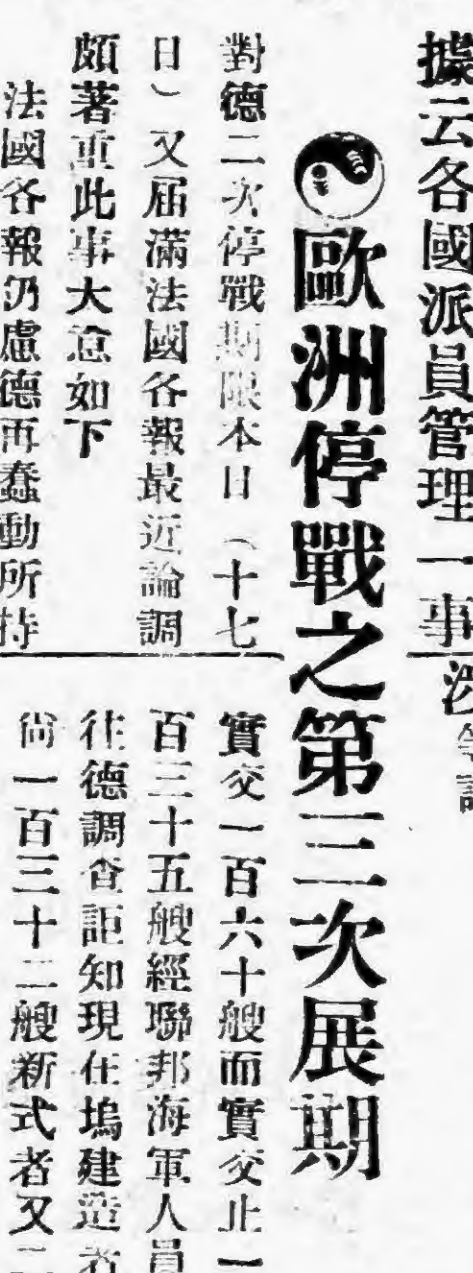 據云各國派員管理一事
歐洲停戰之第三次展期
對德二次停戰期限本日（十七
日）又屆滿法國各報最近論調
頗著重此事大意如下
法國各報仍慮德再蠢動所持
實交一百六十艘而實交止一
百三十五艘經聯邦海軍人員
往德調查詎知現在塢建造者
尚一百三十二艘新式者又二